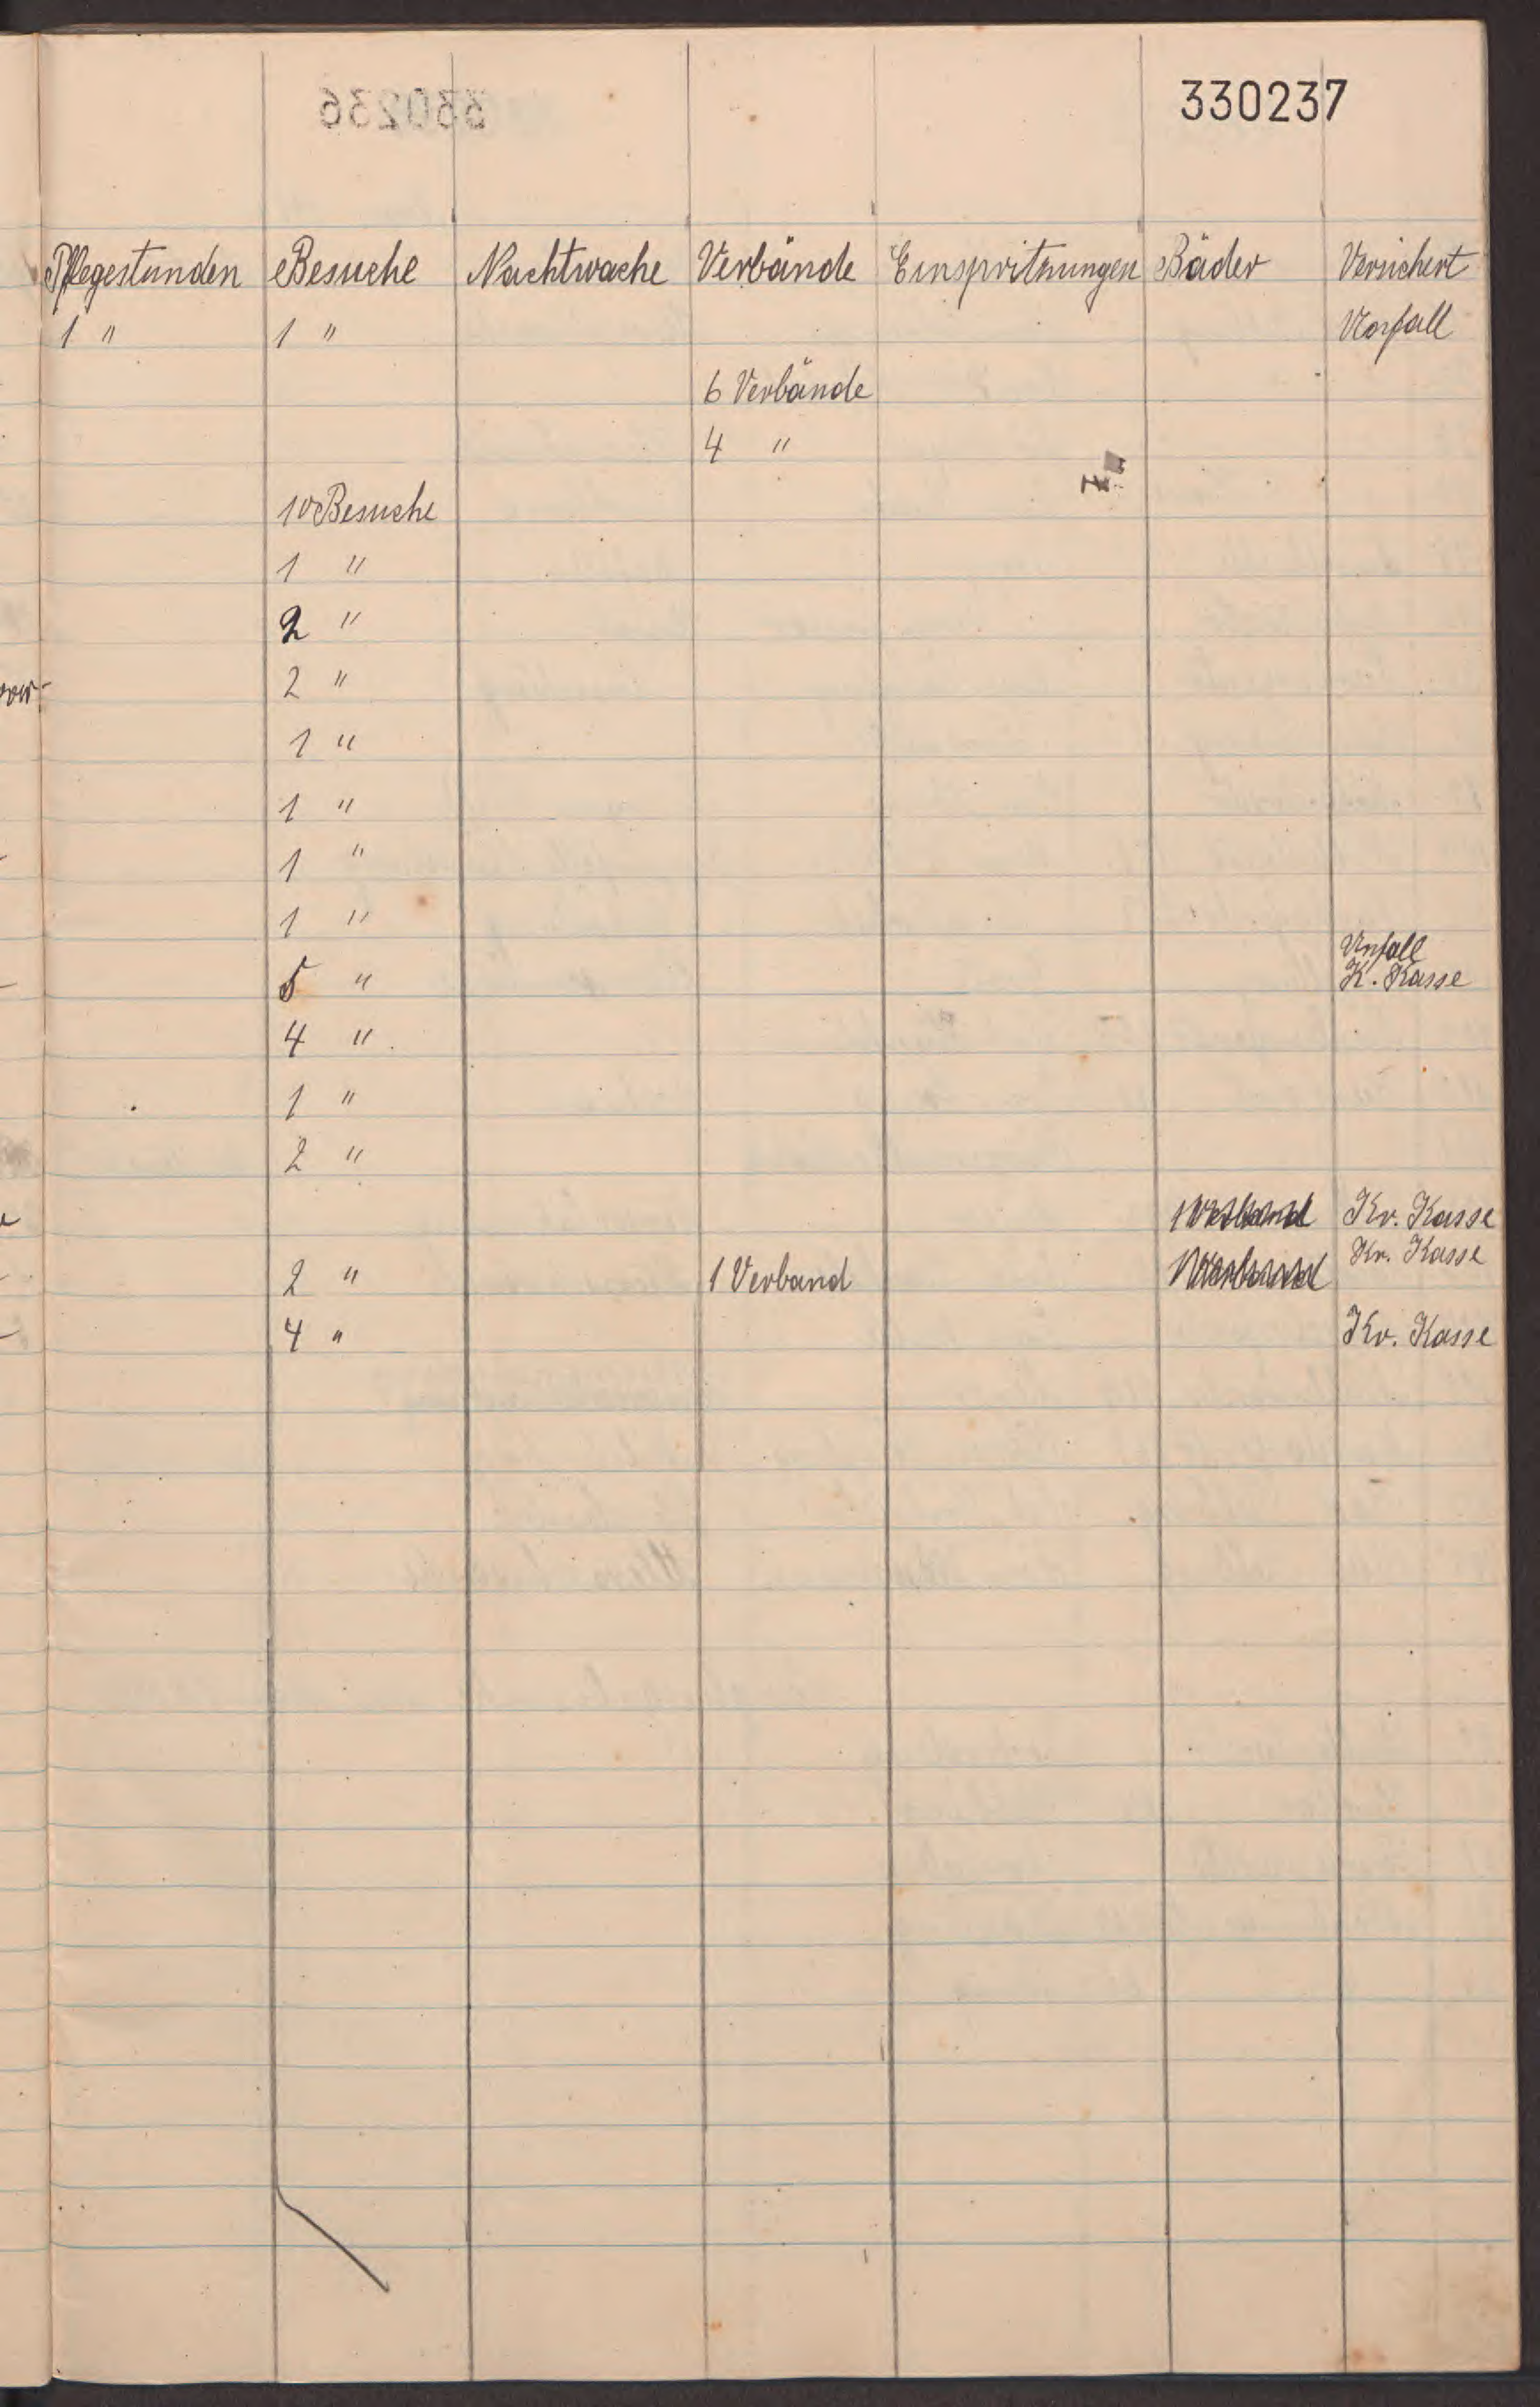 330237
Pflegestunden Besuche Nachtwache Verbände Einspritzungen Bäder Versichert
1 " 1 " Vorfall
6 Verbände
4 "
10 Besuche
1 "
2 "
2 "
1 "
1 "
1 "
1 "
Unfall
5 " K. Kasse
4 "
1 "
2 "
1 Verband Kr. Kasse
Kr. Kasse
2 " 1 Verband 1 Verband
4 " Kr. Kasse